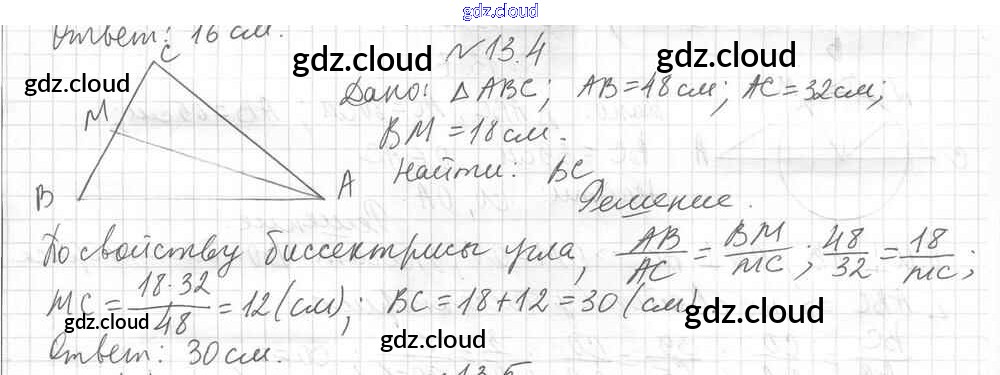 gdz.cloud
Ответ: 16 см.
№ 13.4
gdz.cloud
gdz.cloud
gdz.cloud
C
M
B
A
Дано: △ABC; AB=48см; AC=32см;
BM=18см.
Найти: BC
Решение.
По свойству биссектрисы угла, AB/AC = BM/MC; 48/32 = 18/MC;
MC = 18·32/48 = 12 (см); BC = 18+12 = 30 (см)
gdz.cloud
gdz.cloud
gdz.cloud
Ответ: 30 см.
13.5